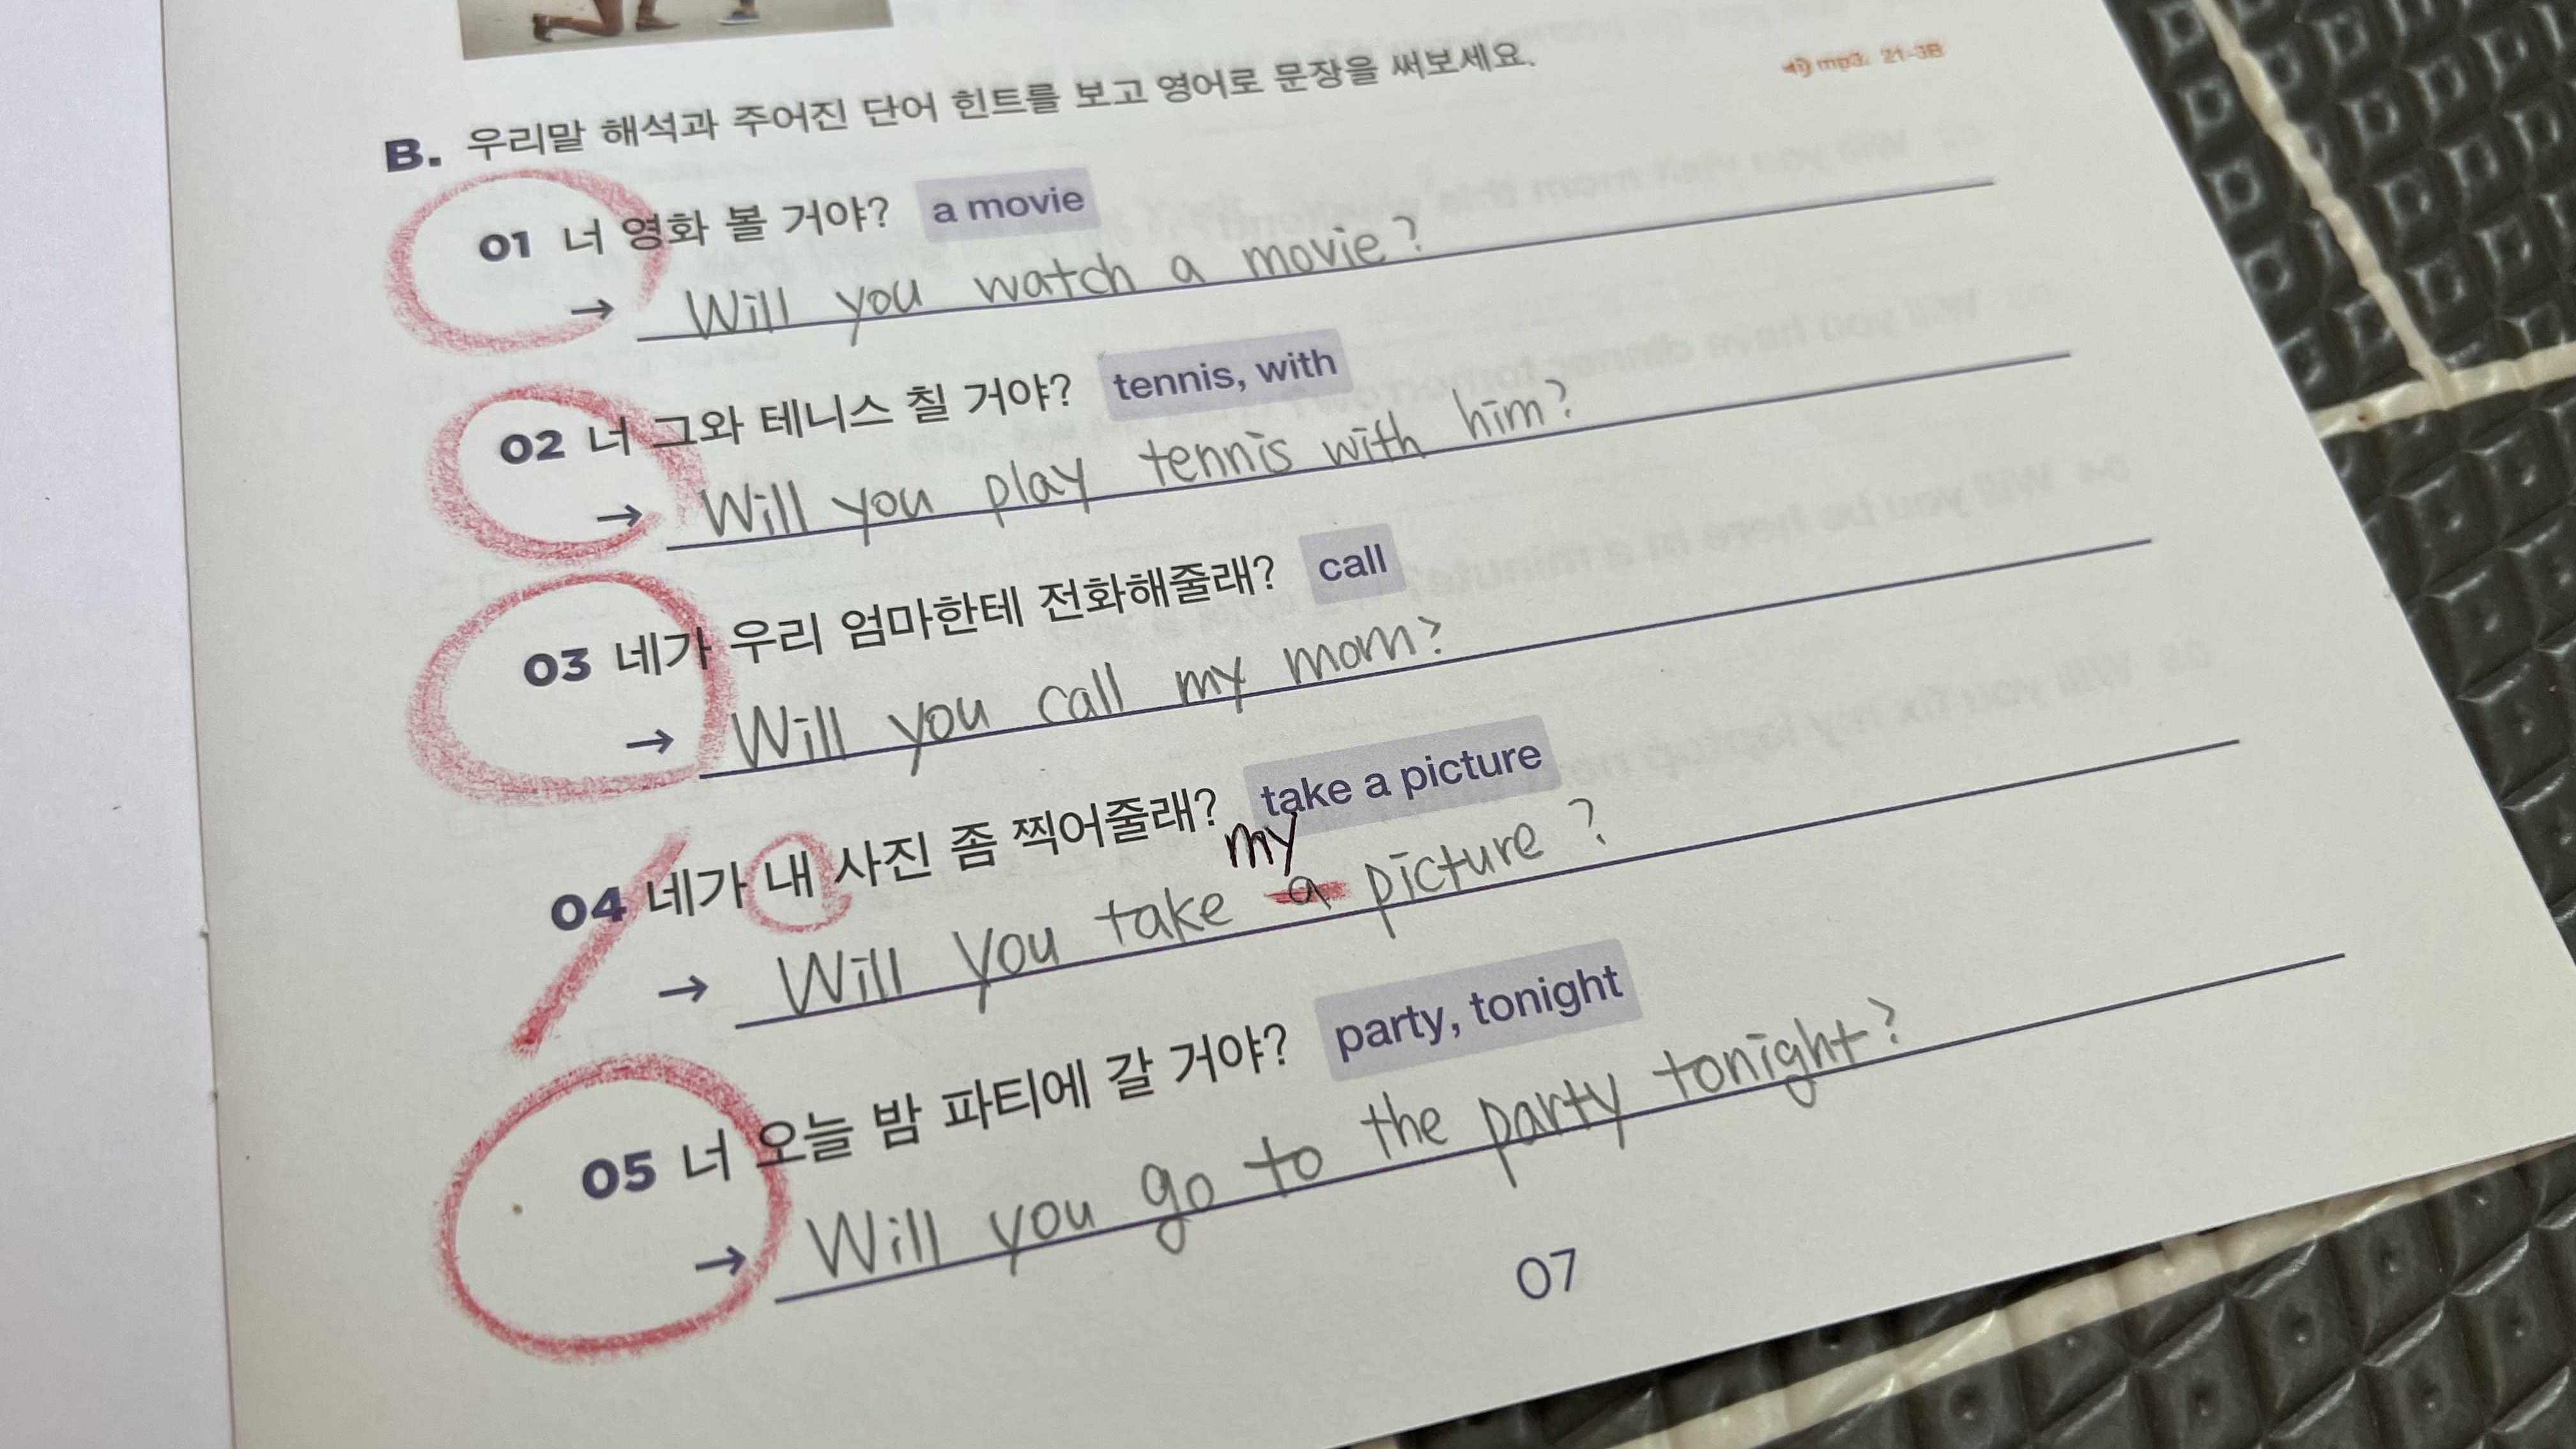 mp3: 21-3B
B. 우리말 해석과 주어진 단어 힌트를 보고 영어로 문장을 써보세요.
01 너 영화 볼 거야? a movie
→ Will you watch a movie?
02 너 그와 테니스 칠 거야? tennis, with
→ Will you play tennis with him?
03 네가 우리 엄마한테 전화해줄래? call
→ Will you call my mom?
04 네가 내 사진 좀 찍어줄래? take a picture
my
→ Will you take a picture?
05 너 오늘 밤 파티에 갈 거야? party, tonight
→ Will you go to the party tonight?
07